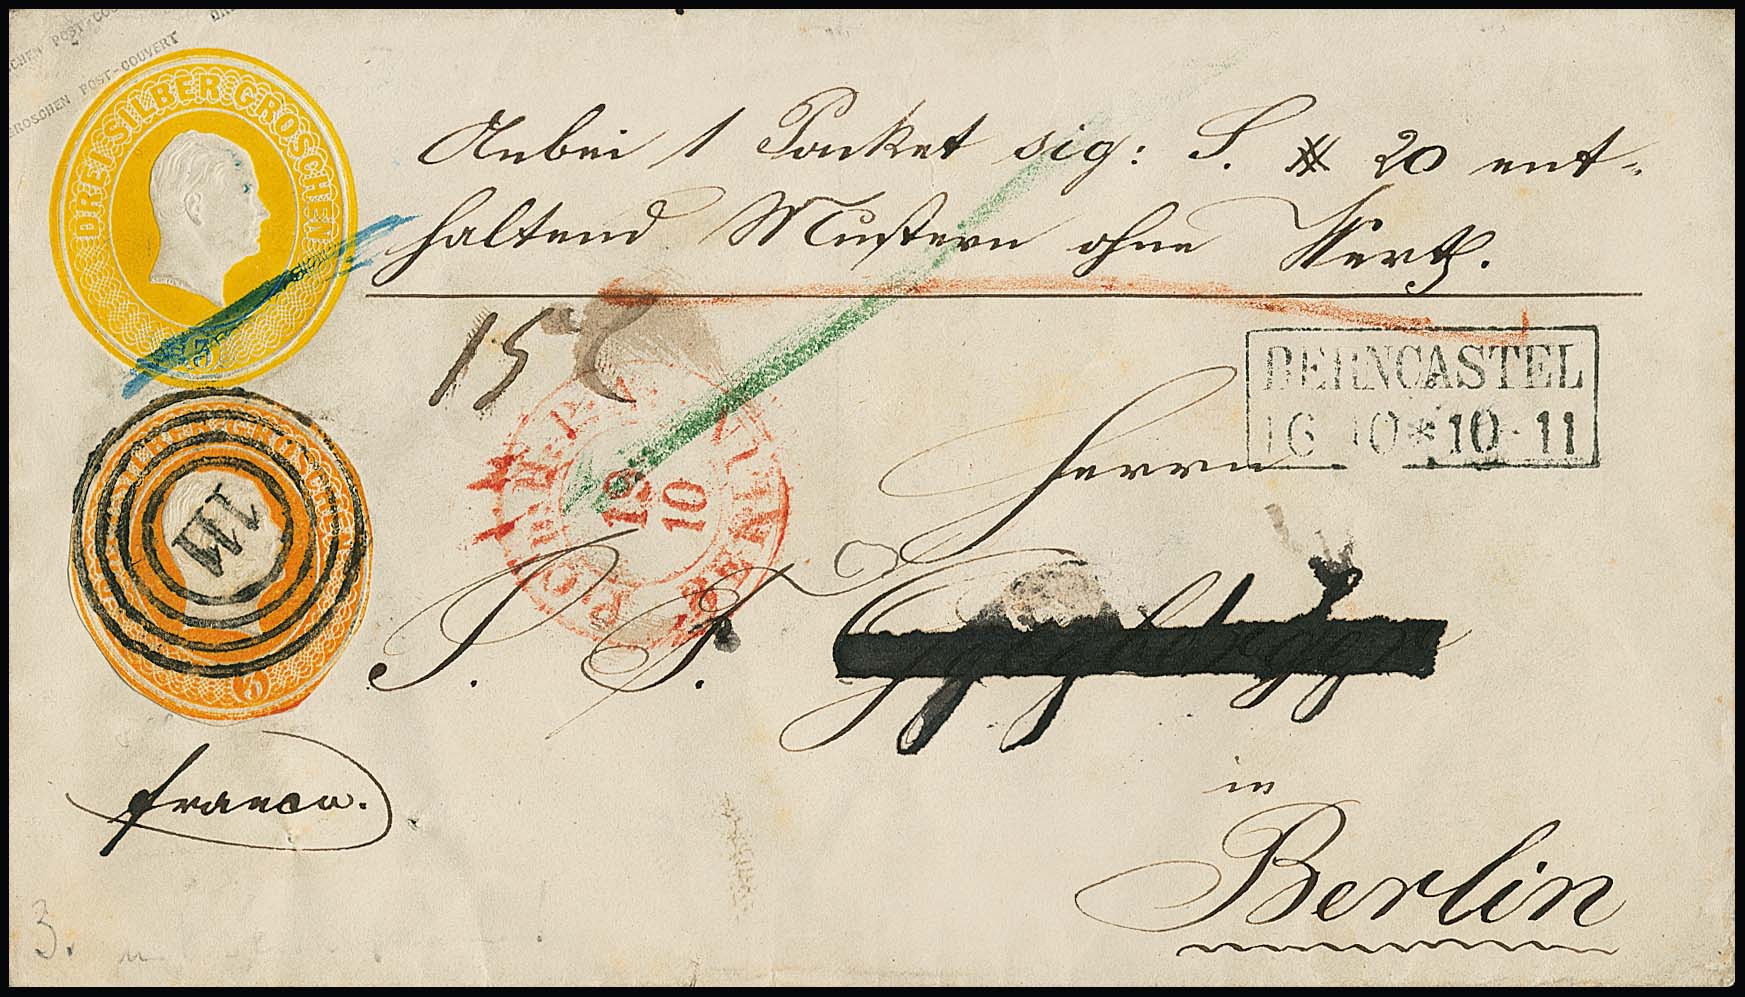 POST-COUVERT
GROSCHEN POST-COUVERT
DREI SILBER GROSCHEN
3
Anbei 1 Packet sig: S. # 20 ent-
haltend Mustern ohne Werth.
15
BERNCASTEL
16 10 * 10 - 11
Herrn
19
10
in
Berlin
franco.
3
3.